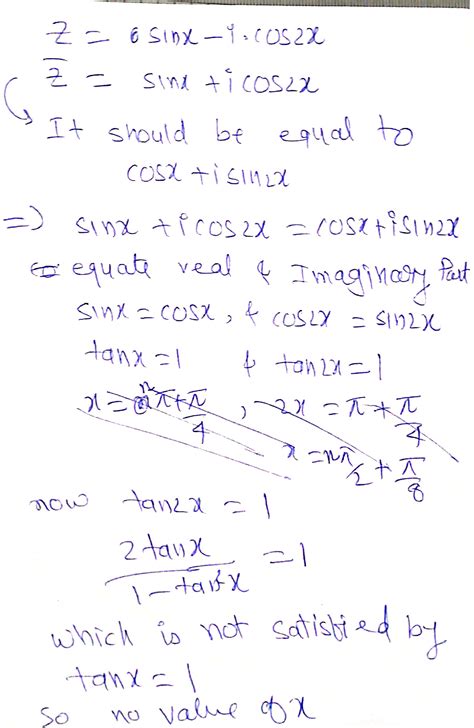 Z = sinx - i. cos2x
z̅ = sinx + i cos2x
It should be equal to
cosx + i sin2x
=) sinx + i cos2x = cosx + i sin2x
equate real & Imaginary Part
sinx = cosx, & cos2x = sin2x
tanx = 1 & tan2x = 1
x = nπ + π/4 , 2x = π + π/4
x = nπ/2 + π/8
now tan2x = 1
2tanx / 1 - tan²x = 1
which is not satisfied by
tanx = 1
so no value of x